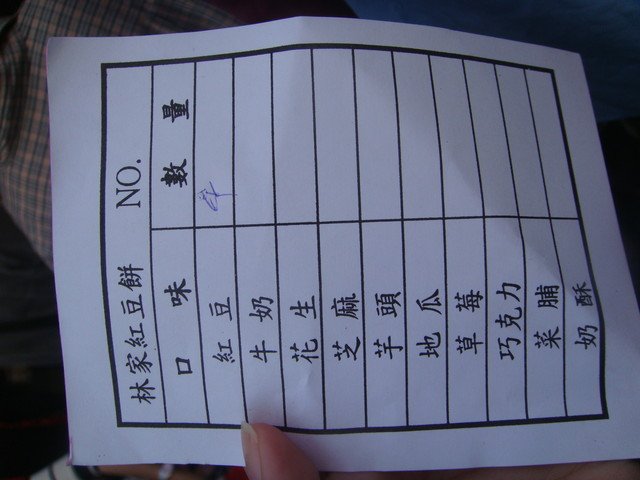 林家紅豆餅 NO.
口味 數量
紅豆
牛奶
花生
芝麻
芋頭
地瓜
草莓
巧克力
菜脯
奶酥